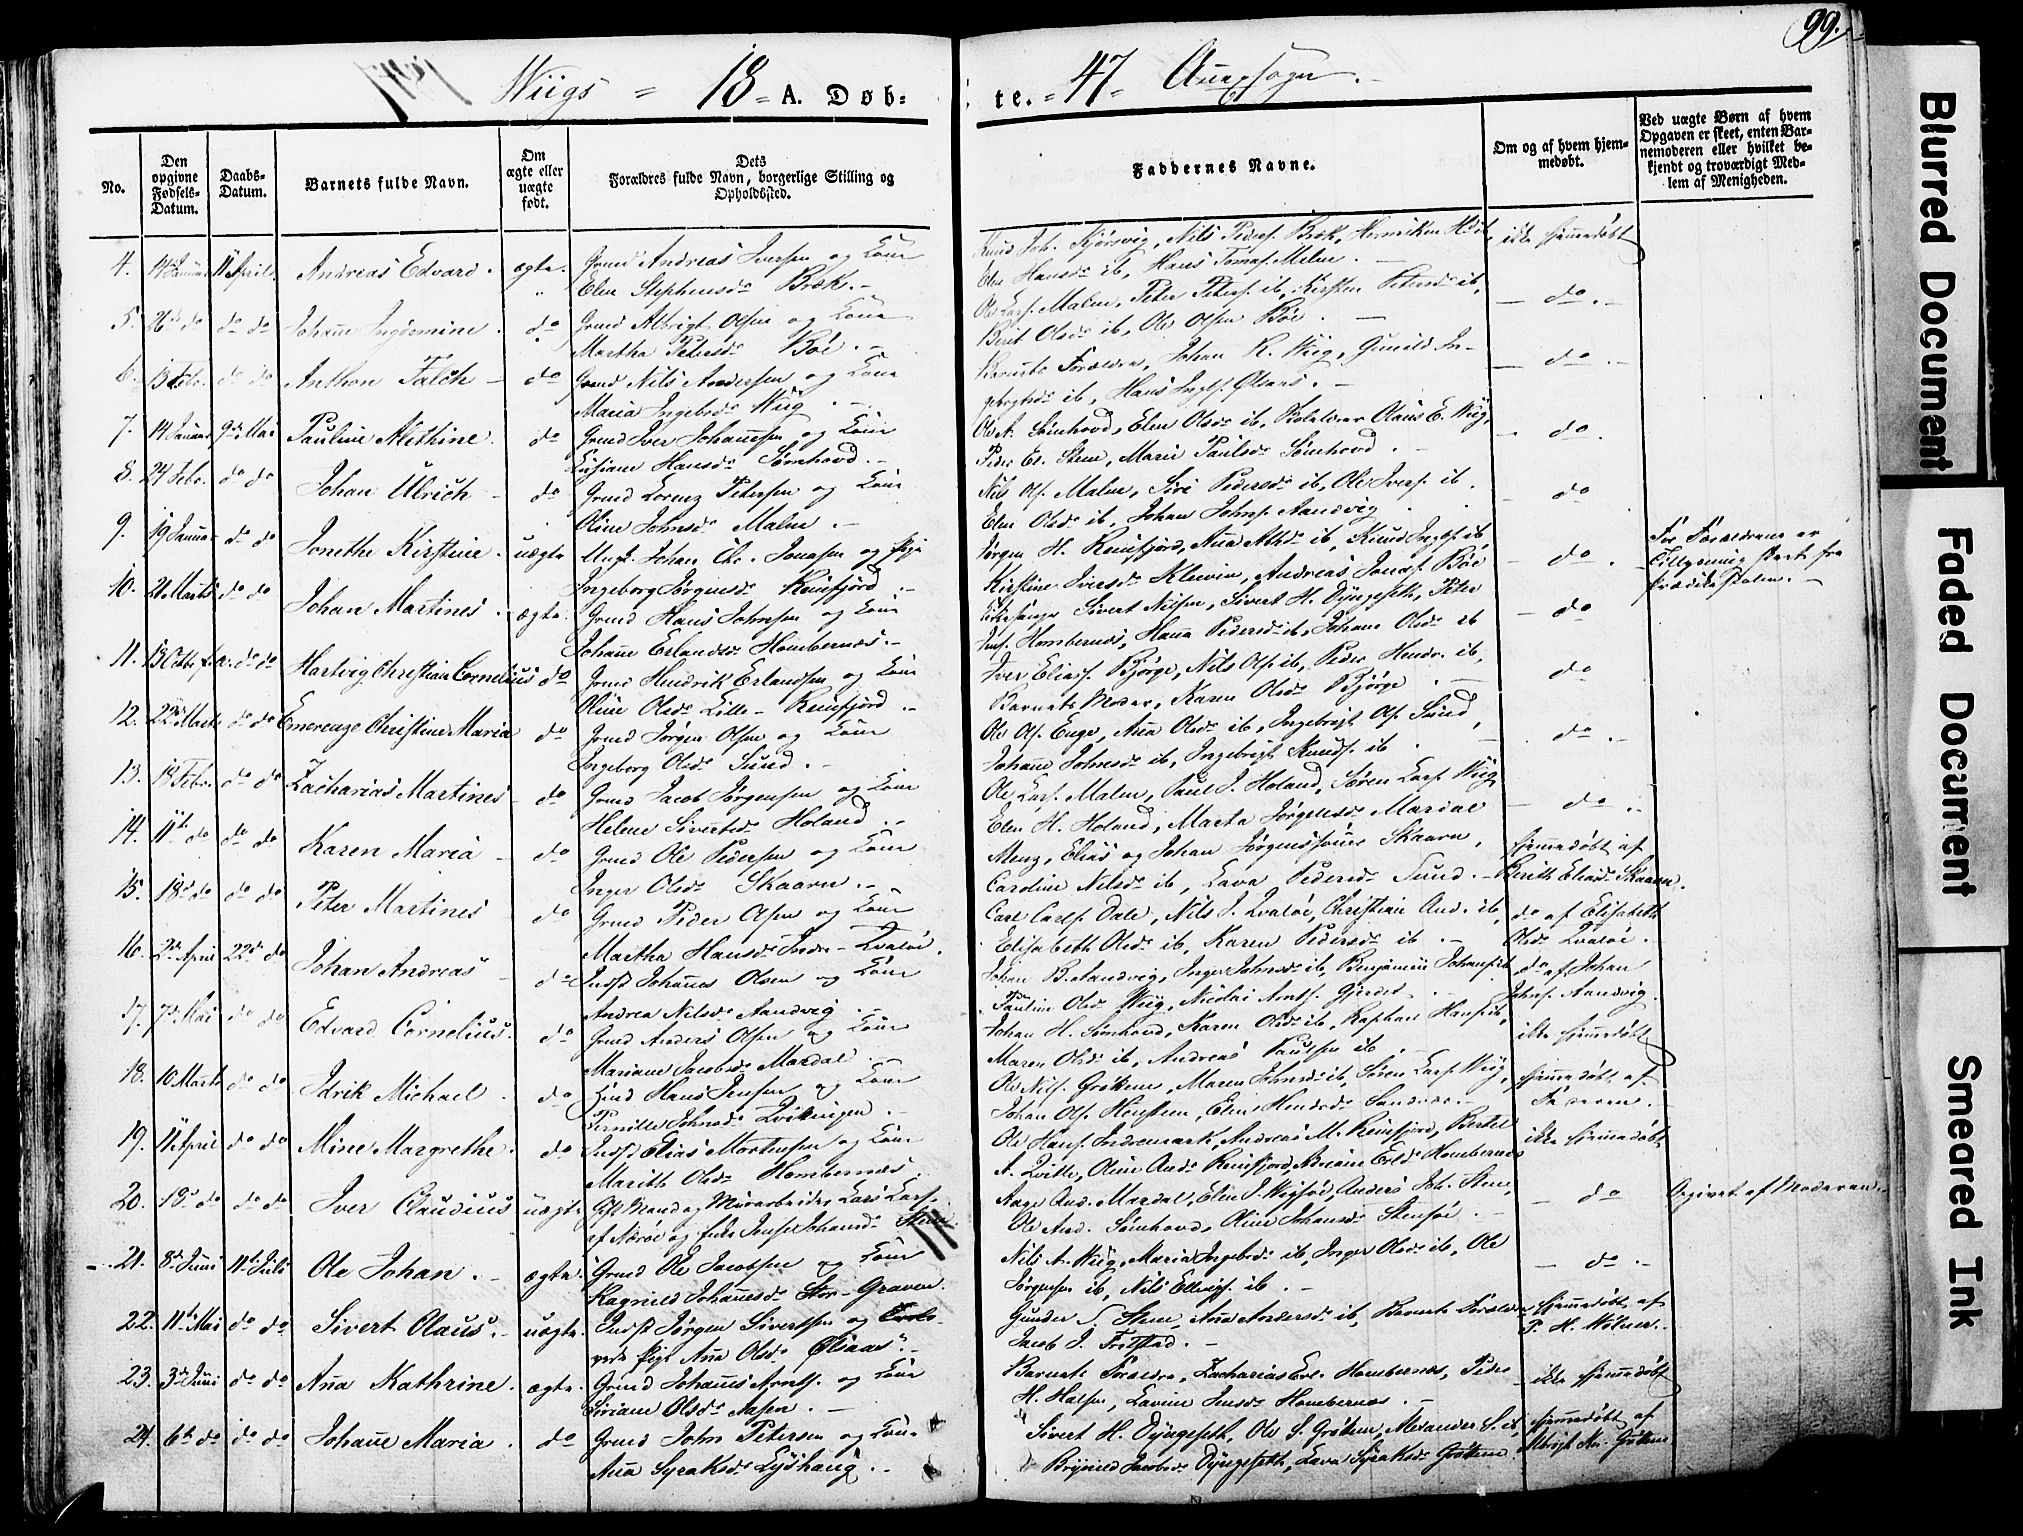 99.
Wiigs = 18 = A. Døb-
te. = 47 = Annexsogn.
No.
Den opgivne Fødsels-Datum.
Daabs-Datum.
Barnets fulde Navn.
Om ægte eller uægte født.
Dets Forældres fulde Navn, borgerlige Stilling og Opholdssted.
Faddernes Navne.
Om og af hvem hjemmedøbt.
Ved uægte Børn af hvem Opgaven er skeet, enten Barnemoderen eller hvilket bekjendt og troværdigt Medlem af Menigheden.
4. 14 Januar 11 April. Andreas Edvard. ægte. Gmd Andreas Iversen og Kone
Elen Stephensdr Bræk.
Knud Joh. Kjørsvig, Nils Peders. Bræk,
Elen Hansdr ib, Hans Tomas. Malm.
ikke hjemmedøbt
5. 26de do do do Johane Ingermine. do Gmd Albrigt Olsen og Kone
Martha Petersdr Böe.
Ole Lars. Malm, Peter Peters. ib, Kirsten Petersdr ib,
Berit Olsdr ib, Ole Olsen Böe.
do
6. 13 Febr. do do Anthon Falch do Gmd Nils Andersen og Kone
Maria Ingebrdr Wiig.
Barnets Forældre, Johan K. Wiig, Gunild In-
gebrigtsdr ib, Hans Ingb. Ølsaas.
do
7. 14 Januar 9de Mai Pauline Alethine. do Gmd Iver Johansen og Kone
Hansdr Sørnhovd.
Ole A. Sömhovd, Elen Olsdr ib, Skolelærer Claus E. Wiig,
Peder Er. Stene, Marie Paulsdr Sömhovd.
do
8. 24 Febr. do do Johan Ulrich do Gmd Lorenz Petersen og Kone
Oline Johnsdr Malm.
Nils Ols. Malm, Siri Pedersdr ib, Ole Ivers. ib.
Elen Olsdr ib, Johan Johns. Aandvig
do
9. 19 Januar do do Jonethe Kirstine. uægte Ungk. Johan Chr. Jonassen og Pige
Ingeborg Jørgensdr Reinsfjord
Jørgen H. Reinsfjord, Ana Mthdr ib, Knud Ingbs. ib,
Kirstine Iversdr Kleivin, Andreas Jonas. Böe
do.
For Forældrene er
Tillysning skeet fra
Prædikestolen.
10. 21 Marts do do Johan Martines. ægte. Gmd Hans Johnsen og Kone
Johane Erlandsdr Hombernæs.
Kirkesanger Sivert Nilsen, Sivert H. Dyngeseth, Peter
Jens. Hombernæs, Hanna Pedersdr ib, Johane Olsdr ib
do
11. 13 Octbr f. a. do do Hartvig Christian Cornelius do Gmd Hendrik Erlandsen og Kone
Oline Olsdr Lille-Reinsfjord.
Iver Elias. Bjørge, Nils Ols. ib, Peder Hendr. ib,
Barnets Moder, Karen Olsdr Bjørge
do
12. 22de Marts do do Emerenze Christine Maria do Gmd Jørgen Olsen og Kone
Ingeborg Olsdr Sund.
Ole Ols. Enge, Ana Olsdr ib, Ingebrigt Ols. Sund,
Johane Johnsdr ib, Ingebrigt Knuds. ib
do
13. 18 Febr. do do Zacharias Martines do Gmd Jacob Jørgensen og Kone
Helene Sivertsdr Holand.
Ole Lars. Malm, Paul J. Holand, Søren Lars. Wiig,
Elen H. Holand, Marta Jørgensdr Mardal
do
14. 11te do do do Karen Maria do Gmd Ole Pedersen og Kone
Inger Olsdr Skaaren.
Menz, Elias og Johan Jørgenssöner Skaaren,
Caroline Nilsdr ib, Lava Pedersdr Sund.
hjemmedøbt af
Berith Eliasdr Skaaren.
15. 18de do do do Peter Martines do Gmd Peder Olsen og Kone
Martha Hansdr Indre-Qvalöe.
Carl Carls. Dale, Nils J. Qvalöe, Christian And. ib,
Elisabeth Olsdr ib, Karen Pedersdr ib
do af Elisabeth
Olsdr Qvalöe.
16. 2de April 22de do Johan Andreas do Indst Johannes Olsen og Kone
Andrea Nilsdr Aandvig
Johan B. Aandvig, Inger Johnsdr ib, Benjamin Johans. ib,
Pauline Olsdr Wiig, Nicolai Arnts. Gjerdet
do af Johan
Johns. Aandvig.
17. 7de Mai do do Edvard Cornelius. do Gmd Anders Olsen og Kone
Mariane Jacobsdr Mardal.
Johan H. Sömhovd, Karen Olsdr ib, Raphael Hans. ib,
Maren Olsdr ib, Andreas Paulsen ib
ikke hjemmedøbt
18. 10 Marts do do Idrik Michael. do Hmd Hans Jensen og Kone
Pernille Johnsdr Qvitningen.
Ole Nils. Gröttene, Maren Johnsdr ib, Søren Lars. Wiig,
Johan Ols. Henstien, Elen Hendrdr Sandnæs.
hjemmedøbt af
Faderen.
19. 11te April do do Mine Margrethe. do Indst Elias Mortensen og Kone
Marith Olsdr Hombernæs.
Ole Hans. Indremark, Andreas M. Reinsfjord, Bertel
A. Qvitte, Oline Andr Reinsfjord, Erldr Hombernæs
ikke hjemmedøbt
20. 18de do do do Iver Claudius uægte. Gift Mand og Murarbeider Lars Lars.
af Næröe og Enke Johansdr Stene
Aage And. Mardal, Elen J. Wigsöe, Anders Joh. Stene,
Ole And. Sömhovd, Oline Johansdr Stensöe.
do
Opgivet af Moderen.
21. 8de Juni 11te Juli Ole Johan. ægte. Gmd Ole Jacobsen og Kone
Ragnild Johanesdr Stor-Graven.
Nils A. Wiig, Maria Ingebrdr ib, Inger Olsdr ib, Ole
Jørgensen ib, Nils Ellings. ib.
do
22. 11te Mai do do Sivert Olaus. uægte. Indst Jørgen Sivertsen og
Pige Ana Olsdr Ølsaas.
Gunder J. Stene, Ana Andersdr ib, Barnets Forældre
Jacob J. Fredstad.
hjemmedøbt af
P. H. Wolner.
23. 3de Juni do do Ana Kathrine. ægte. Gmd Johanes Arnts. og Kone
Siriane Olsdr Aasen.
Barnets Forældre, Zacharias Erl. Hombernæs, Peder
H. Halsen, Lavine Jensdr Hombernæs.
ikke hjemmedøbt
24. 6te do do do Johane Maria. do Gmd John Petersen og Kone
Ana Syraksdr Lyshaug.
Sivert H. Dyngeseth, Ole S. Gröttene, Alexander S. ib,
Brynild Jacobsdr Dyngeseth, Lava Syraksdr Gröttene
hjemmedøbt af
Gröttene
Blurred Document
Faded Document
Smeared Ink